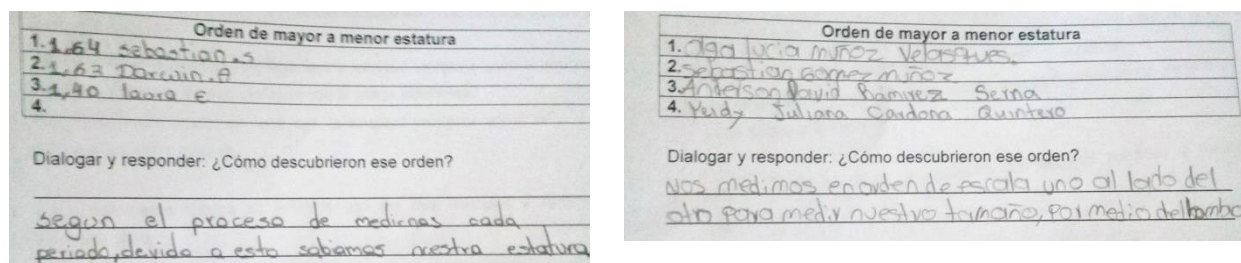 Orden de mayor a menor estatura
1. 1,64 sebastian.s
2. 1,63 Darwin.A
3. 1,40 laura E
4.
Dialogar y responder: ¿Cómo descubrieron ese orden?
segun el proceso de medirnos cada
periodo, devido a esto sabiamos nuestra estatura
Orden de mayor a menor estatura
1. Olga lucia muñoz Velasques.
2. Sebastian Gomez muñoz
3. Anderson David Ramirez Serna
4. Yeidy Juliana Cardona Quintero
Dialogar y responder: ¿Cómo descubrieron ese orden?
Nos medimos en orden de escala uno al lado del
otro para medir nuestro tamaño, por medio del hombro